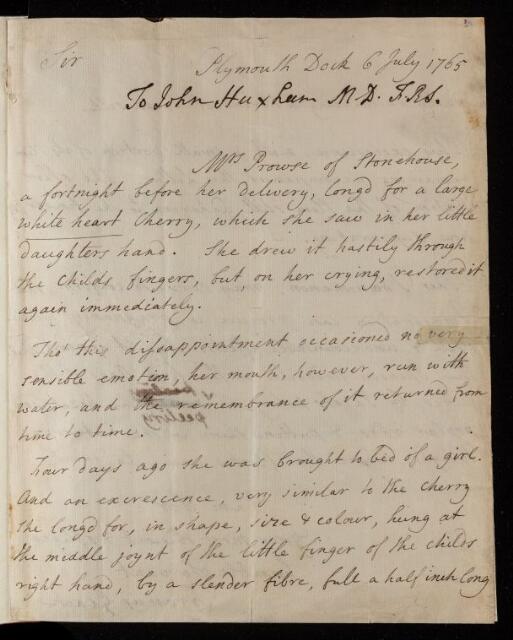 Sir
Plymouth Dock 6 July 1765
To John Huxham M.D. F.R.S.
Mrs Prowse of Stonehouse,
a fortnight before her delivery, long'd for a large
white heart Cherry, which she saw in her little
daughters hand. She drew it hastily through
the childs fingers, but, on her crying, restored it
again immediately.
Tho' this disappointment occasioned no very
sensible emotion, her mouth, however, run with
water, and the remembrance of it returned from
time to time.
Four days ago she was brought to bed of a girl.
And an excrescence, very similar to the cherry
she long'd for, in shape, size & colour, hung at
the middle joynt of the little finger of the childs
right hand, by a slender fibre, full a half inch long